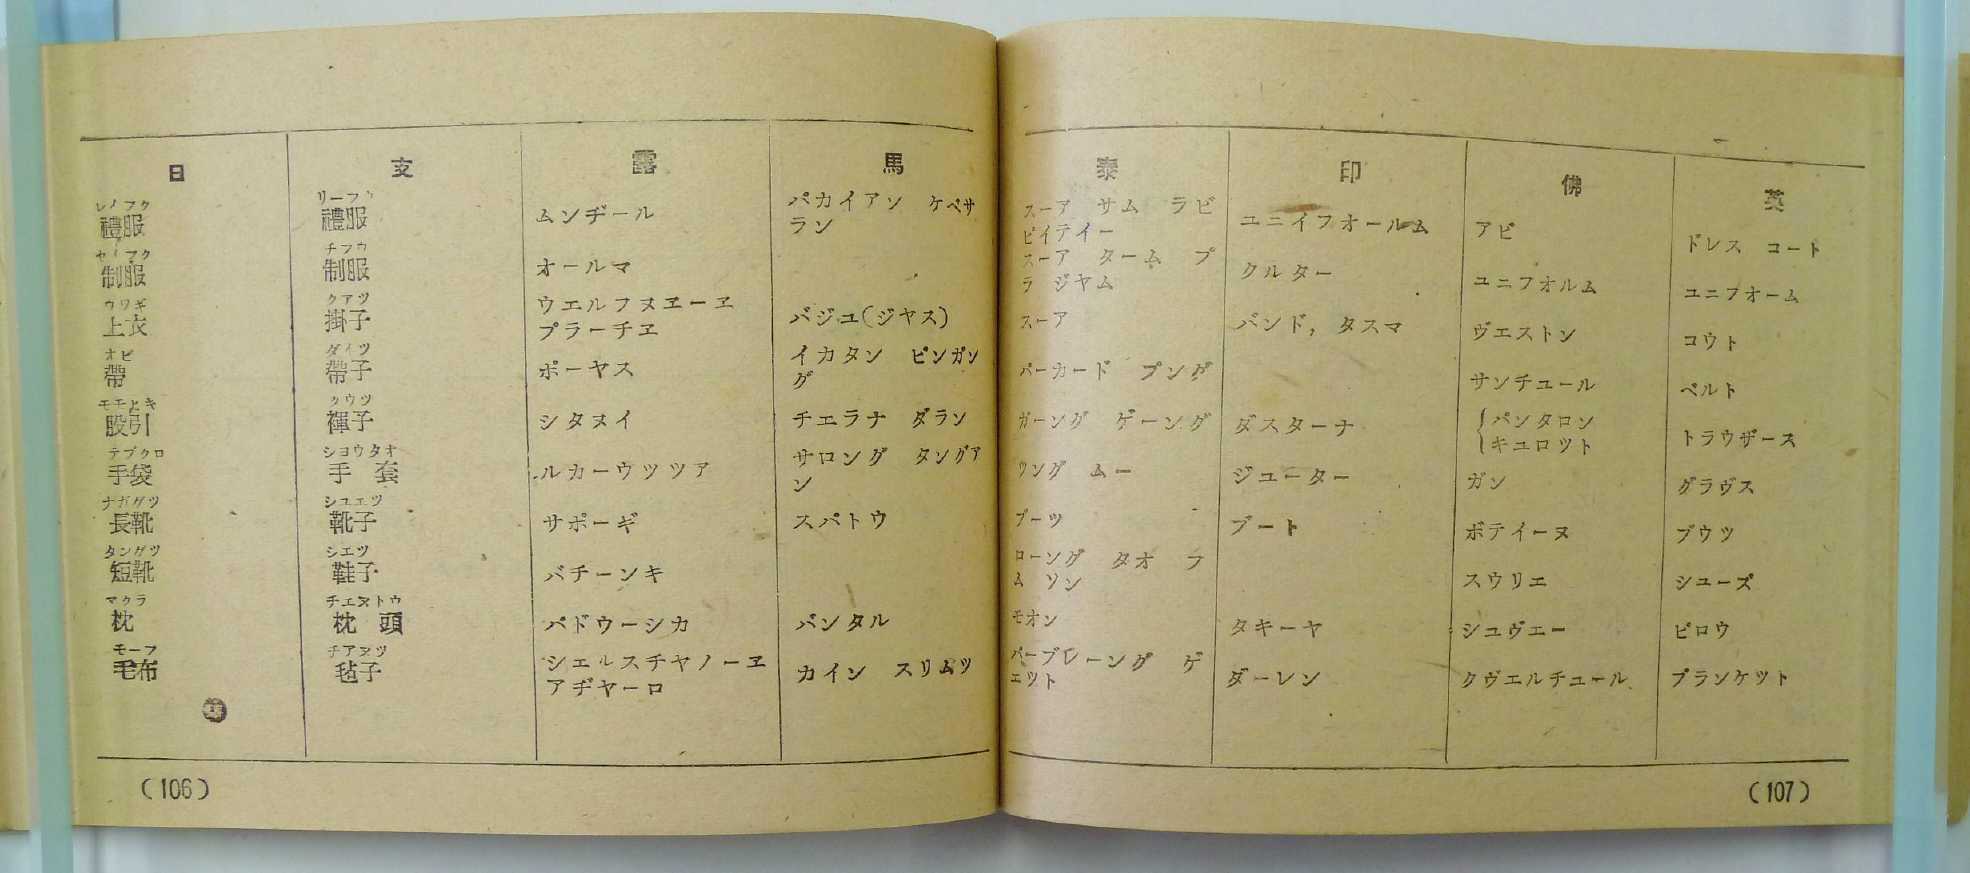 日
レイフク
禮服
セイフク
制服
ウワギ
上衣
オビ
帶
モモヒキ
股引
テブクロ
手袋
ナガグツ
長靴
タングツ
短靴
マクラ
枕
モーフ
毛布
(106)
支
リーフウ
禮服
チフウ
制服
クアツ
掛子
ダイツ
帶子
クウツ
褌子
ショウタオ
手 套
シユエツ
靴子
シエツ
鞋子
チエヌトウ
枕 頭
チアヌツ
毡子
露
ムンヂール
オールマ
ウエルフヌヱーヱ
プラーチヱ
ポーヤス
シタヌイ
ルカーウッツア
サポーギ
バチーンキ
パドウーシカ
シエルスチヤノーヱ
アヂヤーロ
馬
パカイアン ケベサ
ラン
バジユ(ジヤス)
イカタン ピンガン
グ
チエラナ ダラン
サロング タングア
ン
スパトウ
バンタル
カイン スリムツ
泰
スーア サム ラビ
ピイテイー
スーア ターム プ
ラ ジヤム
スーア
パーカード プング
ガーング ゲーング
ツング ムー
ブーツ
ローング タオ フ
ム ソン
モオン
パープレーング ゲ
エツト
印
ユニイフオールム
クルター
バンド, タスマ
ダスターナ
ジユーター
ブート
タキーヤ
ダーレン
佛
アビ
ユニフオルム
ヴエストン
サンチユール
パンタロン
キユロツト
ガン
ボテイーヌ
スウリエ
シユヴエー
クヴエルチユール
英
ドレス コート
ユニフオーム
コウト
ベルト
トラウザース
グラヴス
ブウツ
シユーズ
ピロウ
ブランケツト
(107)